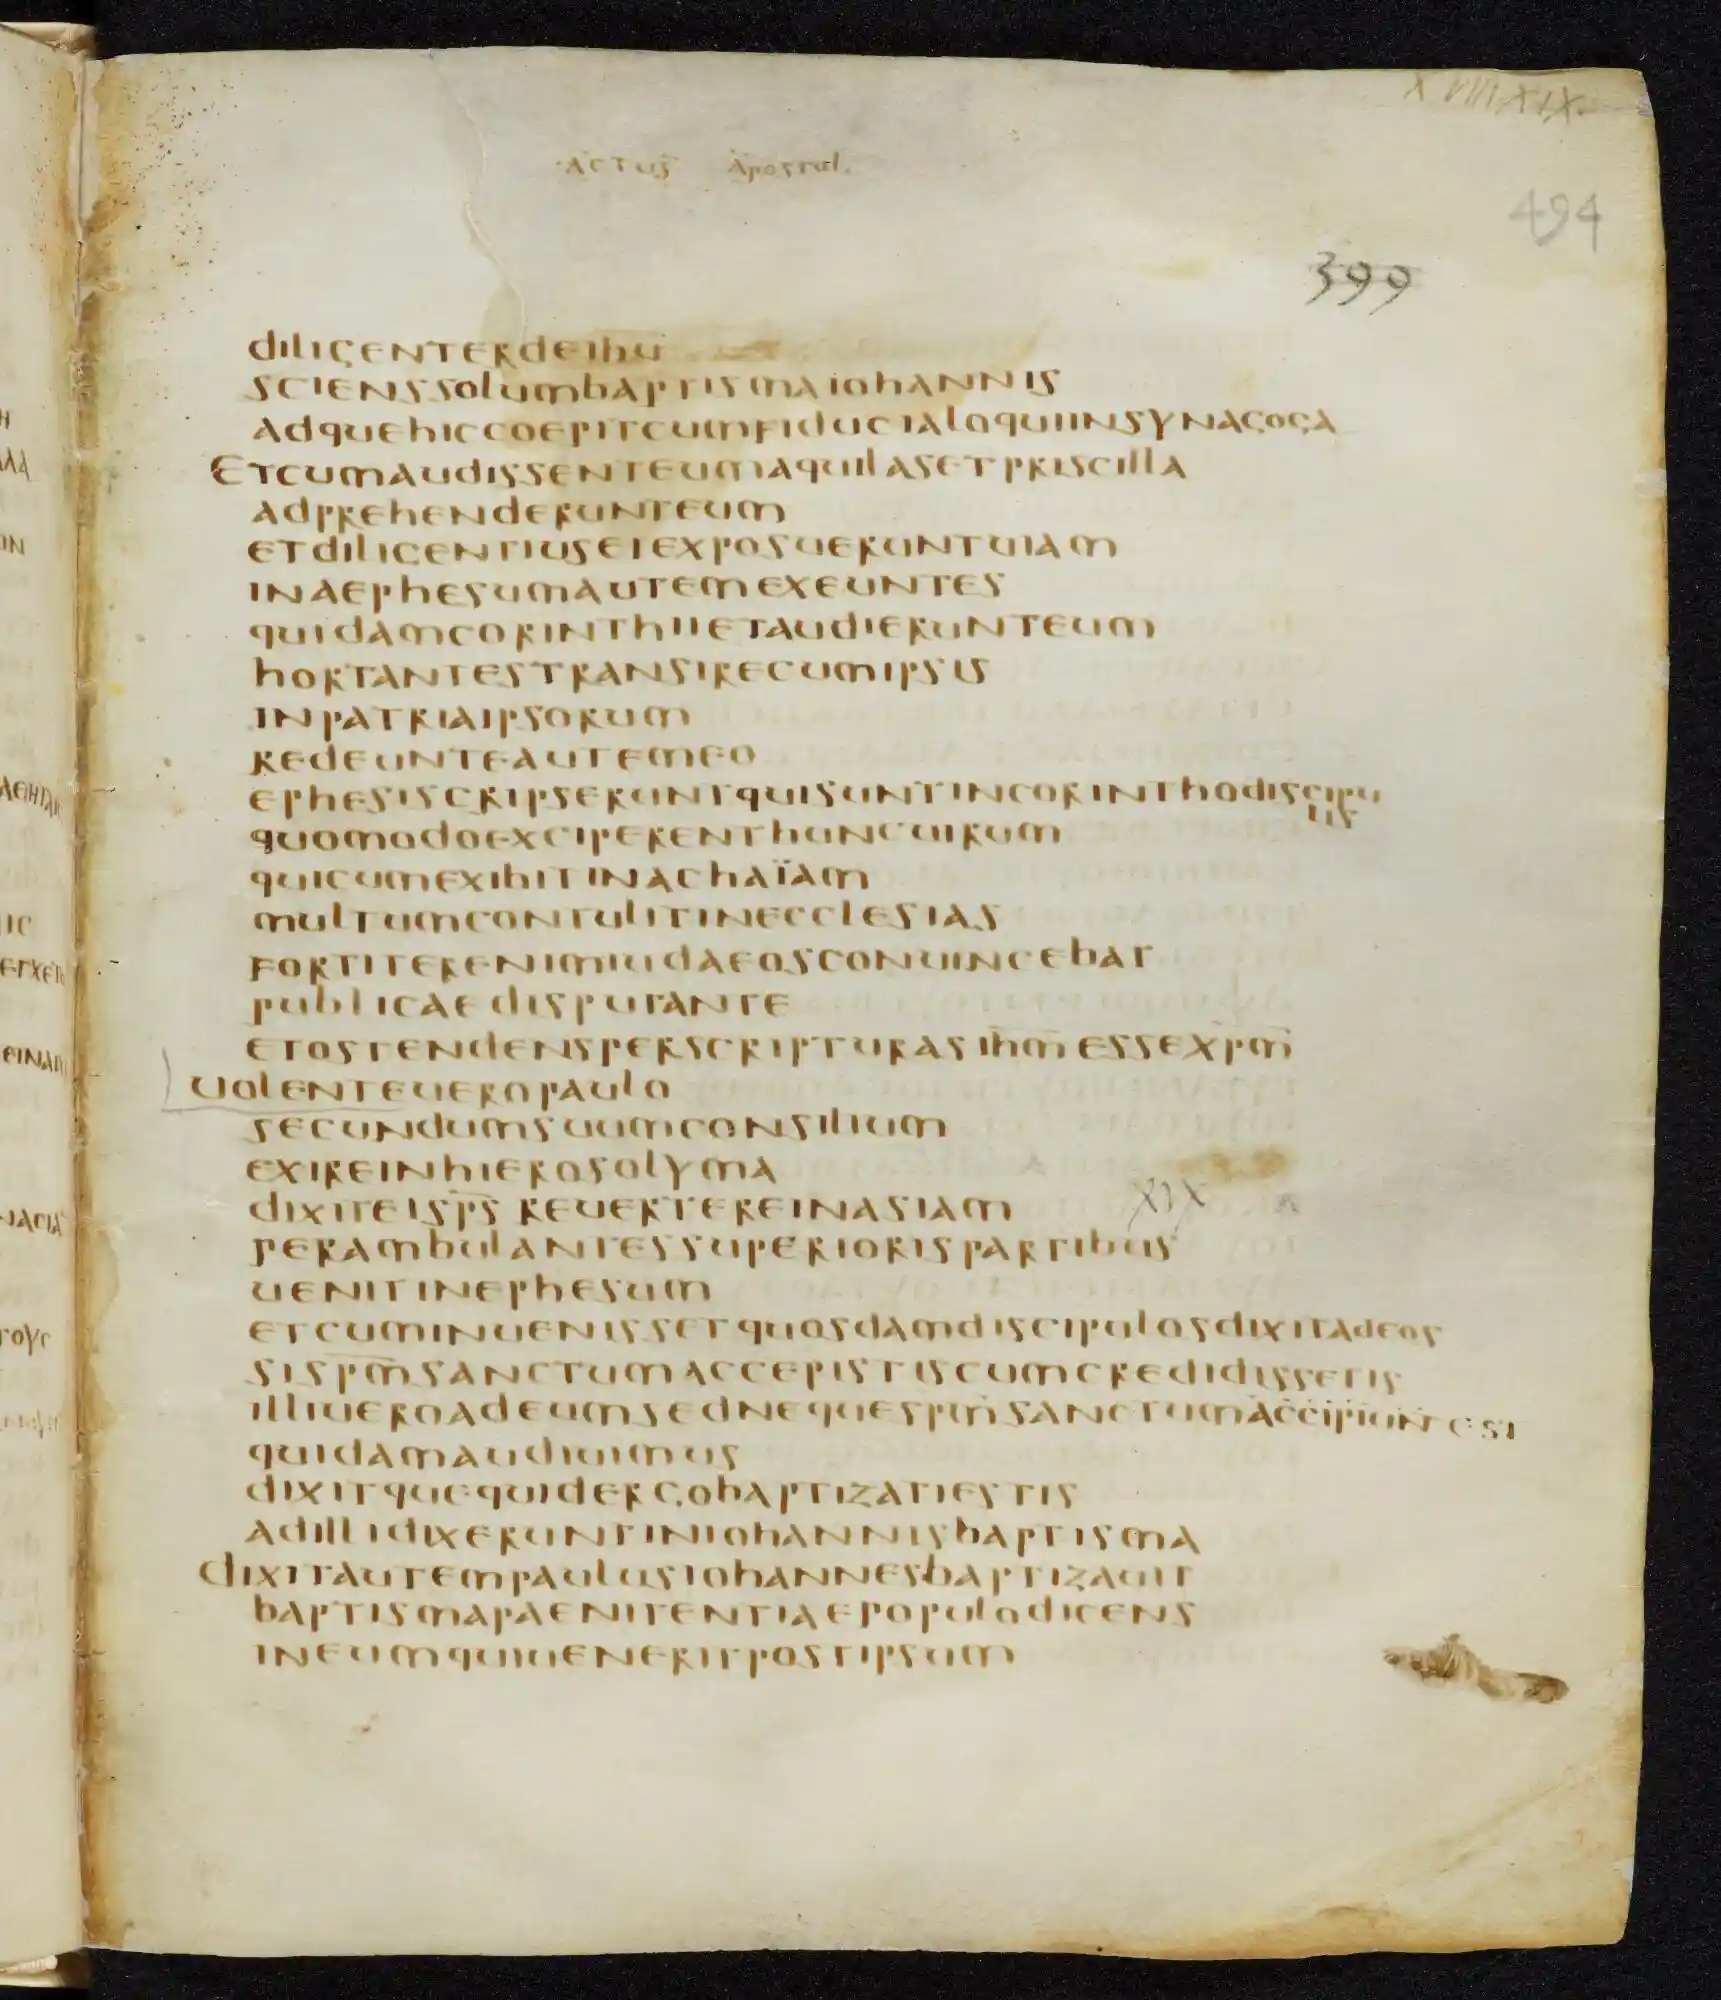 XVIII XIX
ACTUS APOSTOL.
494
399
diliGENTERdEihu
SCIENSSOlumbAPTISmAiohANNIS
AdquEhiccoEPITcumFiduciAloquiiNSYNAGOGA
ETcumAudiSSENTEumAquilASETPRISCIllA
AdPREhENdERuNTEum
ETdiliGENTiuSEiEXPOSuERuNTuiAm
INAEPhESumAuTEmEXEuNTES
quidAmcORINThiiETAudiERuNTEum
hORTANTESTRANSIREcumiPSIS
INPATRIAIPSORum
REdEuNTEAuTEmEO
EPhESISCRIPSERuNTquiSuNTINCORINThOdiSciPu
liS
quomodoEXCIPERENThuNcuiRum
quicumEXIbITINAchAïAm
mulTumcONTuliTINEcclESIAS
FORTITERENIMiudAEOScONuiNcEbAT
PublicAEdiSPuTANTE
ETOSTENdENSPERSCRIPTuRASihmESSEXPm
uolENTEuEROPAulo
SEcuNdumSuumcONSilium
EXIREINhiEROSOlYmA
diXITEISPS REuERTEREINASIAm
XIX
PERAmbulANTESSuPERIORISPARTibuS
uENITINEPhESum
ETcumiNuENiSSETquoSdAmdiSciPuloSdiXITAdEOS
SISPmSANCTumACCEPISTIScumcREdidiSSETIS
illiuEROAdEumSEdNEquESPmSANCTumACCIPiuNTESI
quidAmAudiuimuS
diXITquEquidERGObAPTIZATIESTIS
AdillidiXERuNTINiohANNISbAPTISmA
diXITAuTEmPAuluSiohANNESbAPTIZAuIT
bAPTISmAPAENITENTIAEPOPulodicENS
INEumquiuENERITPOSTIPSum